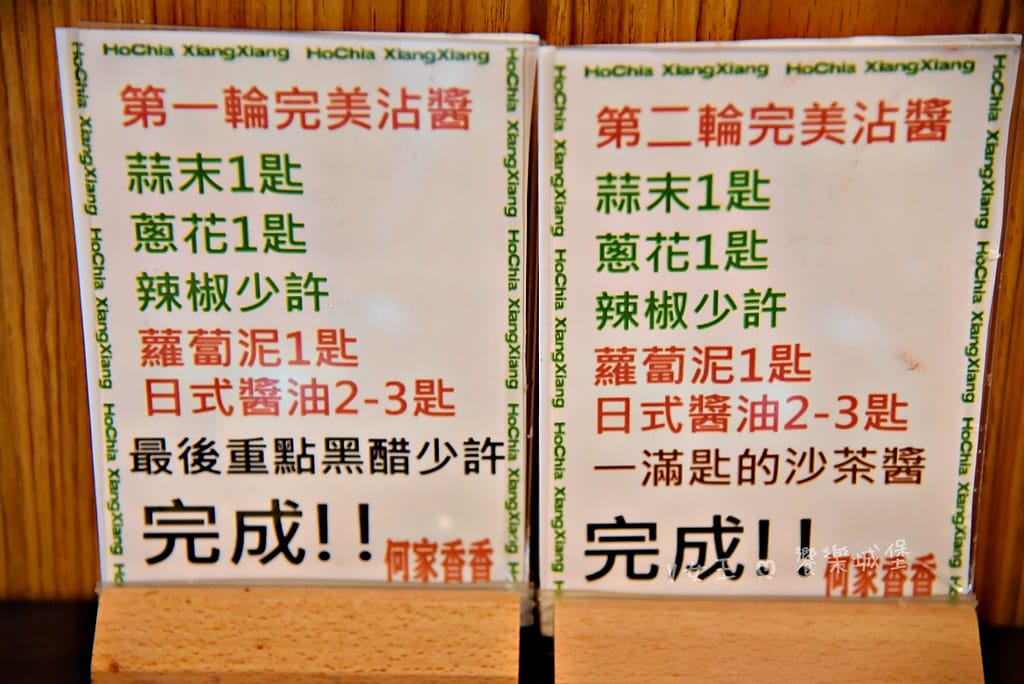 HoChia XiangXiang HoChia XiangXiang
HoChia XiangXiang HoChia XiangXiang HoChia XiangXiang
第一輪完美沾醬
蒜末1匙
蔥花1匙
辣椒少許
蘿蔔泥1匙
日式醬油2-3匙
最後重點黑醋少許
完成!!
何家香香
HoChia XiangXiang HoChia XiangXiang HoChia XiangXiang
HoChia XiangXiang HoChia XiangXiang
HoChia XiangXiang HoChia XiangXiang HoChia XiangXiang
第二輪完美沾醬
蒜末1匙
蔥花1匙
辣椒少許
蘿蔔泥1匙
日式醬油2-3匙
一滿匙的沙茶醬
完成!!
饗樂城堡
何家香香
HoChia XiangXiang HoChia XiangXiang HoChia XiangXiang